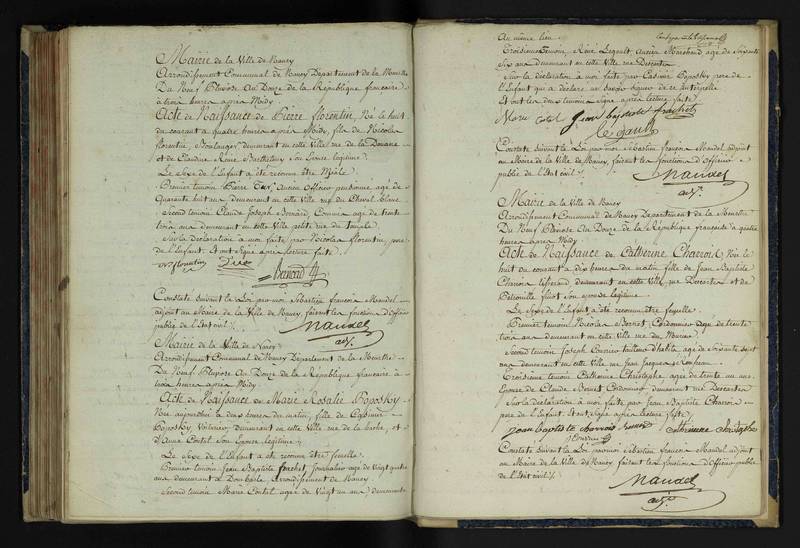 Mairie de la Ville de Nancy
Arrondissement Communal de Nancy Département de la Meurthe
Du Neuf Pluviose An Douze de la République française
à trois heures après Midy
Acte de Naissance de Pierre florentin, Né le huit
du courant à quatre heures après Midy, fils de Nicolas
florentin, Boulanger demeurant en cette Ville rue de la Douane
et de Claudine Reine Barthelemy son Epouse légitime
Le Sexe de l'Enfant a été reconnu être Mâle
Premier témoin Pierre ancien Officier pensionné agé de
Quarante huit ans demeurant en cette Ville rue du Cheval blanc
Second témoin Claude Joseph Bernard, Commis agé de trente
trois ans demeurant en cette Ville petite rue du
Sur la déclaration à moi faite par Nicolas florentin, pere
de l'Enfant. Et ont signé après lecture faite
N. florentin
Bernard
Constaté suivant la Loi par moi Sébastien françois Mandel
adjoint au Maire de la Ville de Nancy, faisant les fonctions d'Officier
public de l'Etat civil
Mandel
adj.
Mairie de la Ville de Nancy
Arrondissement Communal de Nancy Département de la Meurthe
Du Neuf Pluviose An Douze de la République française à
trois heures après Midy
Acte de Naissance de Marie Rosalie Boposky
Née aujourd'hui à deux heures du matin, fille de Casimir
Boposky, Voiturier, demeurant en cette Ville rue de la barbe, et
d'Anne Contal son Epouse légitime
Le Sexe de l'Enfant a été reconnu être femelle
Premier témoin Jean Baptiste frachet, Journalier agé de Vingt quatre
ans demeurant à Dombasle, arrondissement de Nancy
Second témoin Marie Contal agé de Vingt un ans, demeurant
Au même lieu
Troisieme témoin, René Legault, Ancien Marchand agé de Soixante
Six ans demeurant en cette Ville rue
Sur la déclaration à moi faite par Casimir Boposky pere de
l'Enfant qui a déclaré ne savoir signer de ce interpellé
Et ont les deux témoins signé après lecture faite
Jean baptiste frachet
le gault
Constaté suivant la Loi par moi Sébastien françois Mandel adjoint
au Maire de la Ville de Nancy, faisant les fonctions d'Officier
public de l'Etat civil
Mandel
adj.
Mairie de la Ville de Nancy
Arrondissement Communal de Nancy Département de la Meurthe
Du Neuf Pluviose An Douze de la République française à quatre
heures après Midy
Acte de Naissance de Catherine Charrois Née le
huit du courant à dix heures du matin fille de Jean Baptiste
Charrois demeurant en cette Ville rue et de
Pétronille son épouse légitime
Le Sexe de l'Enfant a été reconnu être femelle
Premier témoin Nicolas Bernet, Cordonnier agé de trente
trois ans demeurant en cette Ville rue du
Second témoin Joseph tailleur d'habits agé de Soixante Sept
ans demeurant en cette Ville rue Jean Jacques Rousseau
Troisieme témoin Catherine Christophe agée de trente un ans
Epouse de Claude Cordonnier demeurant rue
Sur la déclaration à moi faite par Jean Baptiste Charrois
pere de l'Enfant. Et ont signé après lecture faite
jean baptiste charrois catherine christophe
Constaté suivant la Loi par moi Sébastien françois Mandel adjoint
au Maire de la Ville de Nancy faisant les fonctions d'Officier public
de l'Etat civil
Mandel
adj.